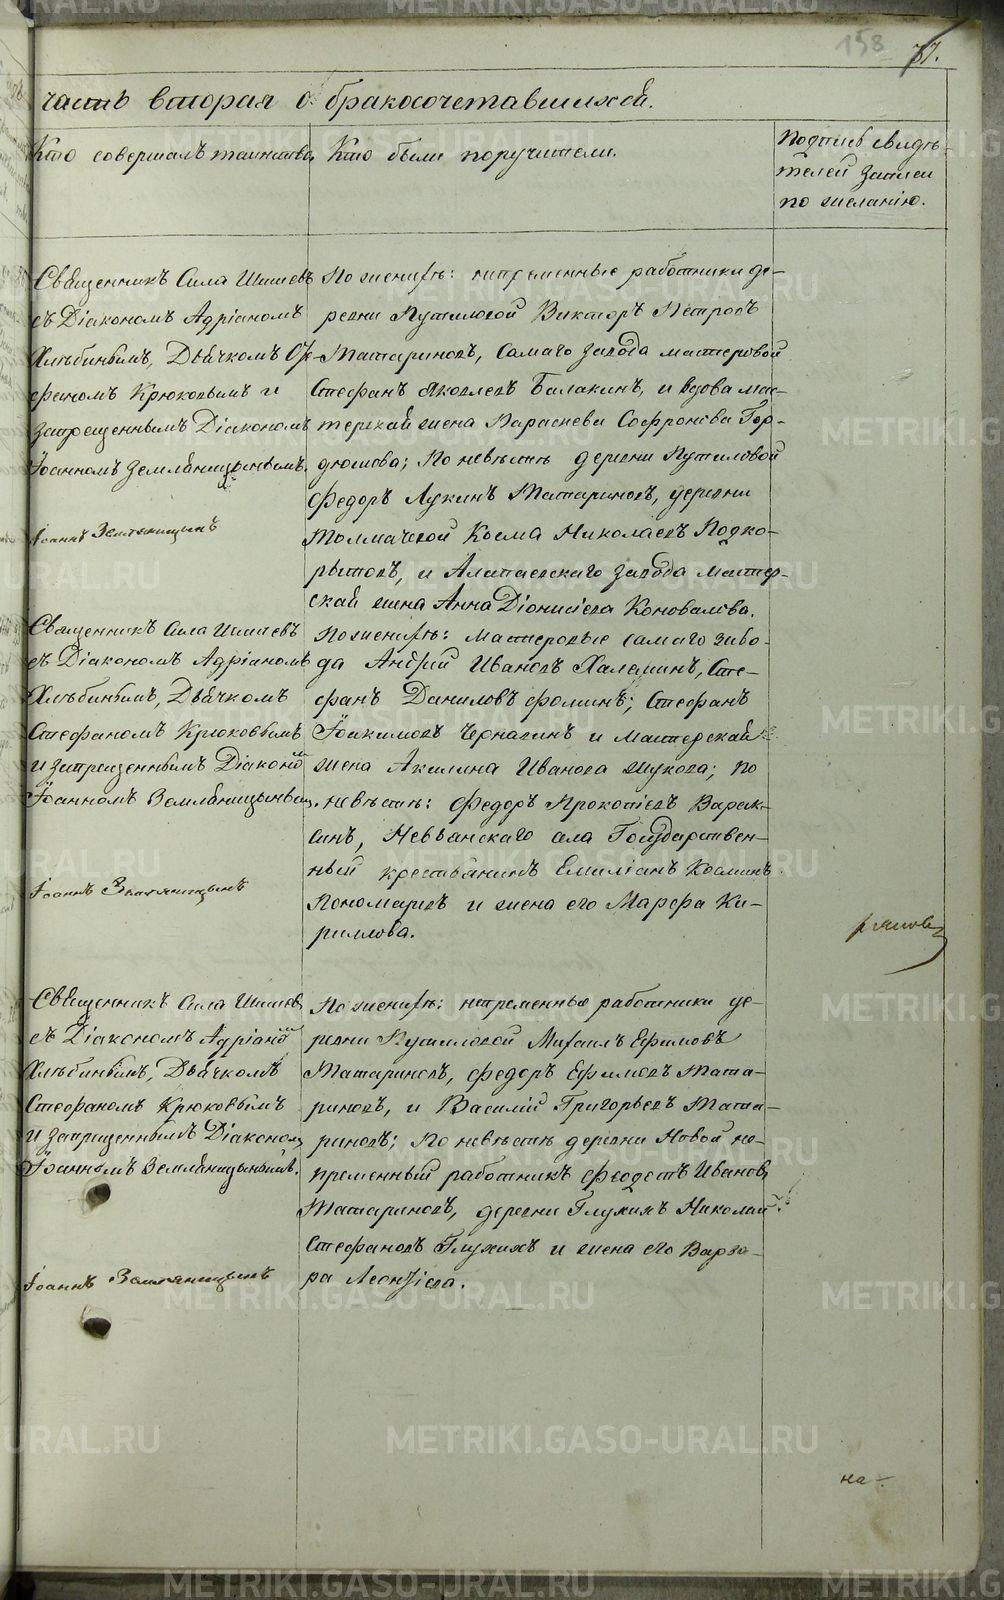 158 77.
часть вторая о бракосочетавшихся.
Кто совершалъ таинство.
Кто были поручители.
Подпись свидѣ-
телей записи
по желанію.
Священникъ Сила Шишевъ
съ Діакономъ Адріаномъ
Хлѣбинымъ, Дьячкомъ Сте-
фаномъ Крюковымъ и
запрещеннымъ Діакономъ
Іоанномъ Земляницынымъ.
Іоаннъ Земляницынъ
По женихѣ: непременные работники де-
ревни Путиловой Викторъ Петровъ
Татариновъ, самаго завода мастеровой
Стефанъ Яковлевъ Балакинъ, и вдова мас-
терская жена Параскева Софронова Гор-
дюшова; по невѣстѣ деревни Путиловой
Федоръ Лукинъ Татариновъ, деревни
Толмачевой Косма Николаевъ Подко-
рытовъ, и Алапаевскаго завода мастер-
ская жена Анна Діонисіева Коновалова.
Священникъ Сила Шишевъ
съ Діакономъ Адріаномъ
Хлѣбинымъ, Дьячкомъ
Стефаномъ Крюковымъ
и запрещеннымъ Діаконом
Іоанномъ Земляницынымъ.
Іоаннъ Земляницынъ
По женихѣ: мастеровые самаго заво-
да Андрей Ивановъ Халеминъ, Сте-
фанъ Даниловъ Фоминъ; Стефанъ
Іоакимовъ Чернавинъ и мастерская
жена Акилина Иванова Жукова; по
невѣстѣ: Федоръ Прокопіевъ Варак-
синъ, Невьянскаго села Государствен-
ный крестьянинъ Емиліанъ Косминъ
Пономаревъ и жена его Марфа Ки-
риллова.
Священникъ Сила Шишев
съ Діакономъ Адріаном
Хлѣбинымъ, Дьячкомъ
Стефаномъ Крюковымъ
и запрещеннымъ Діаконом
Іоанномъ Земляницынымъ.
Іоаннъ Земляницынъ
По женихѣ: непременные работники де-
ревни Путиловой Михаилъ Ефимовъ
Татариновъ, Федоръ Ефимовъ Тата-
риновъ, и Василій Григорьевъ Тата-
риновъ; по невѣстѣ деревни Новой не-
пременный работникъ Феодотъ Иванов
Татариновъ, деревни Глухихъ Николай
Стефановъ Глухихъ и жена его Варва-
ра Леонтіева.
на-
METRIKI.GASO-URAL.RU